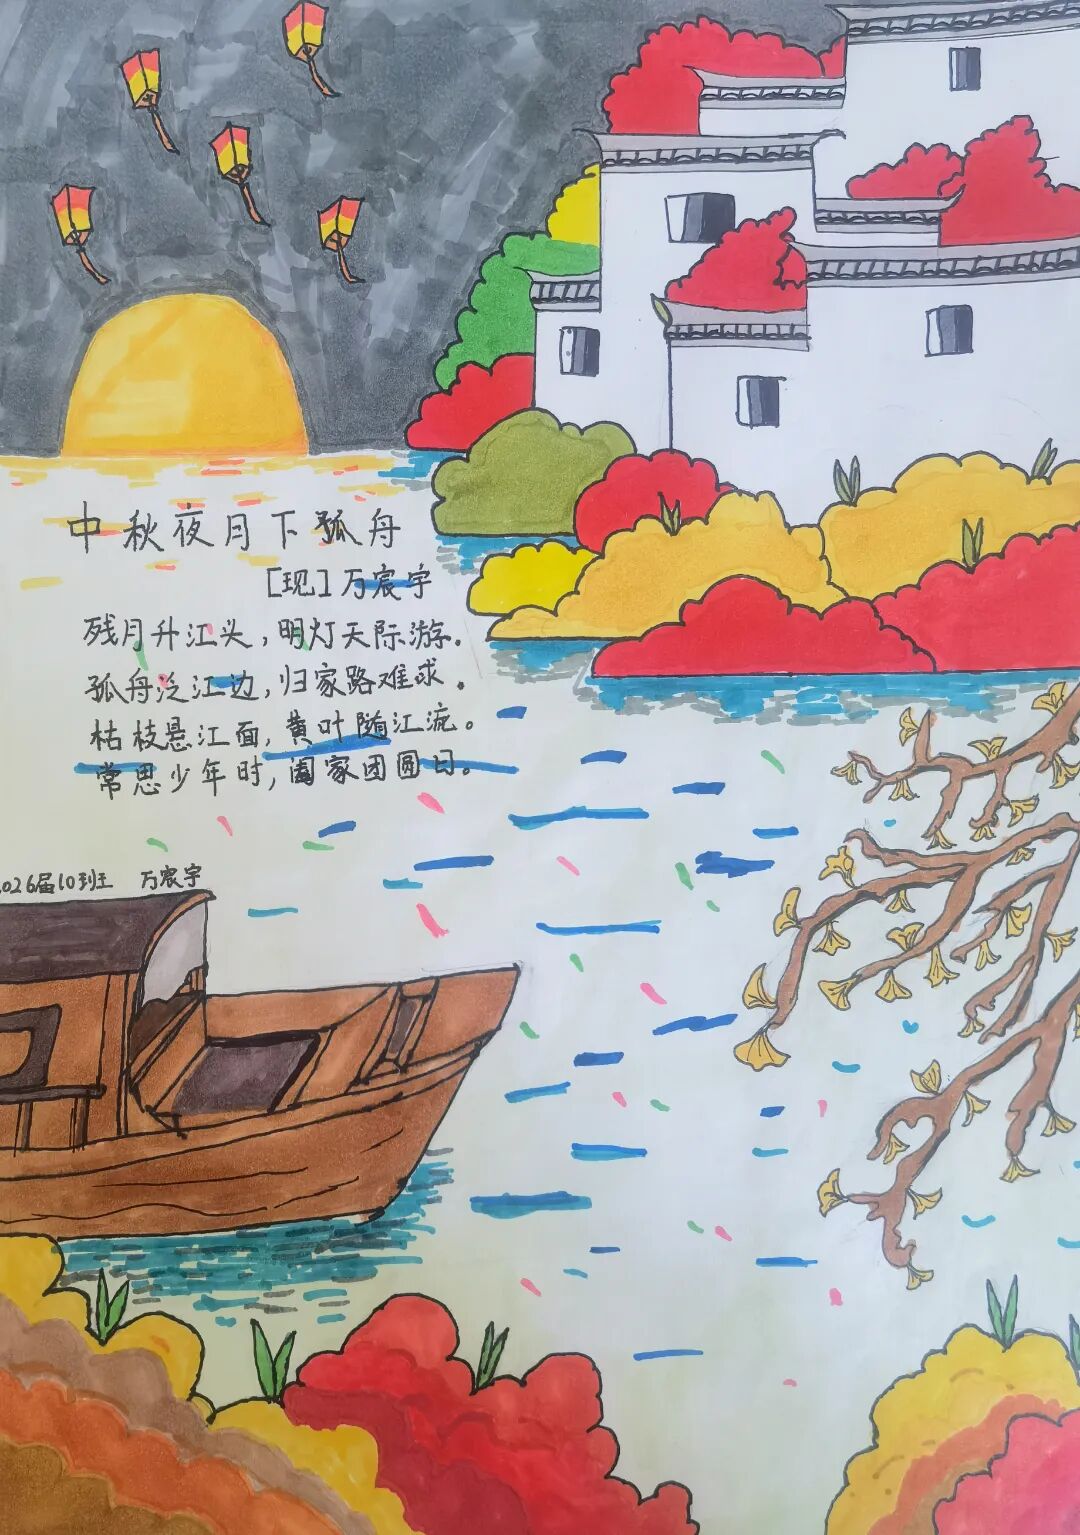 中秋夜月下孤舟
[现]万宸宇
残月升江头,明灯天际游。
孤舟泛江边,归家路难求。
枯枝悬江面,黄叶随江流。
常思少年时,阖家团圆日。
2026届10班 万宸宇